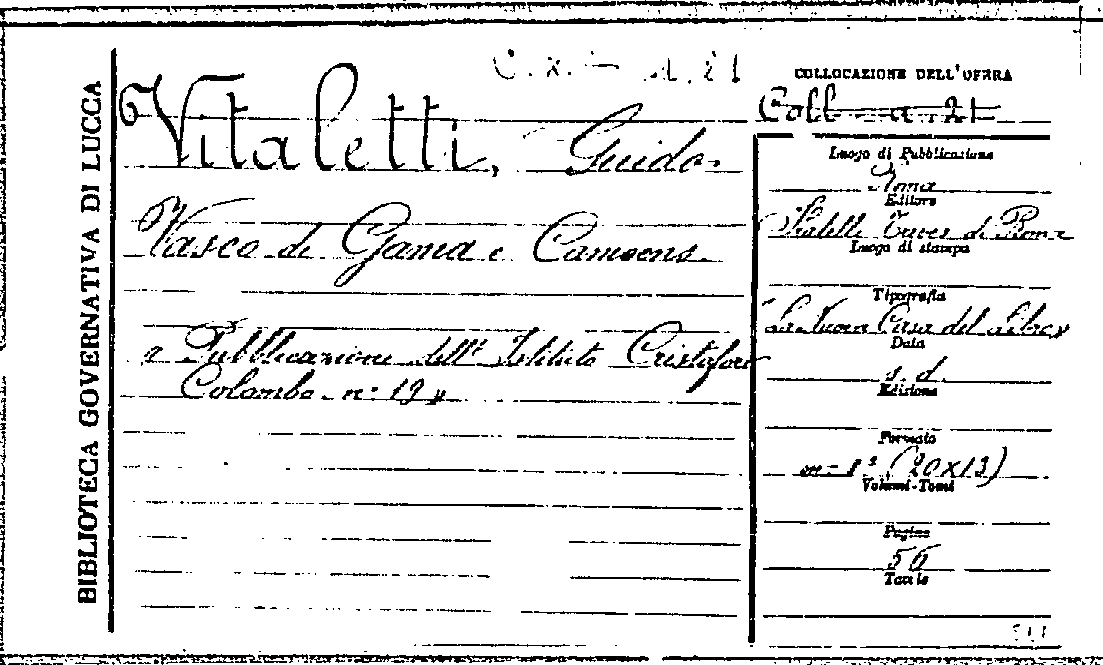 BIBLIOTECA GOVERNATIVA DI LUCCA
Vitaletti, Guido.
Vasco de Gama e Camoens.
« Pubblicazione dell' Istituto Cristoforo
Colombo. n. 19 »
COLLOCAZIONE DELL'OPERA
Coll. a. 21
Luogo di Pubblicazione
Roma
Editore
Fratelli Treves di Roma
Luogo di stampa
Tipografia
La Nuova Casa del Libro
Data
s. d.
Edizione
Formato
in-8° (20x13)
Volumi-Tomi
Pagine
56
Tavole